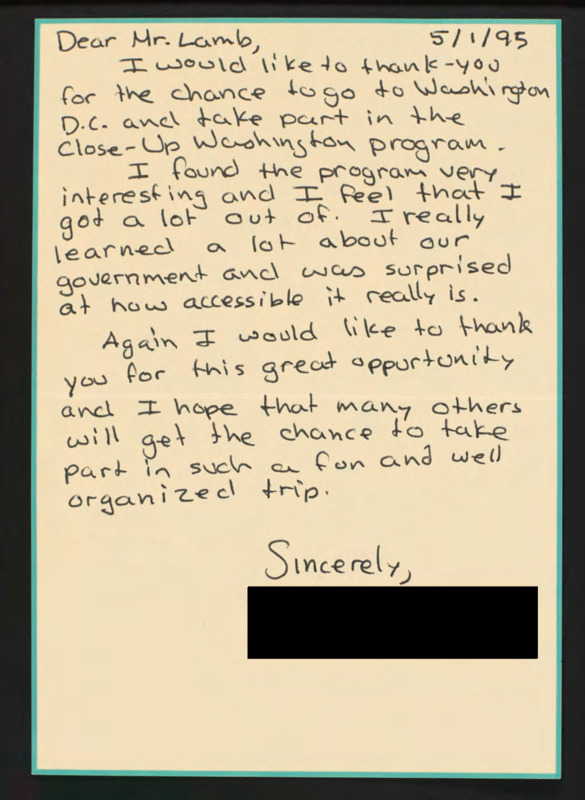 Dear Mr. Lamb, 5/1/95
I would like to thank-you
for the chance to go to Washington
D.C. and take part in the
Close-Up Washington program.
I found the program very
interesting and I feel that I
got a lot out of. I really
learned a lot about our
government and was surprised
at how accessible it really is.
Again I would like to thank
you for this great oppurtunity
and I hope that many others
will get the chance to take
part in such a fun and well
organized trip.
Sincerely,